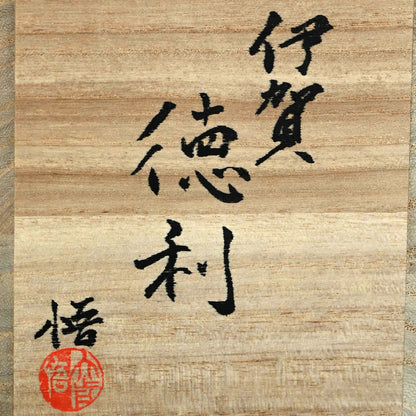 伊賀
徳利
悟